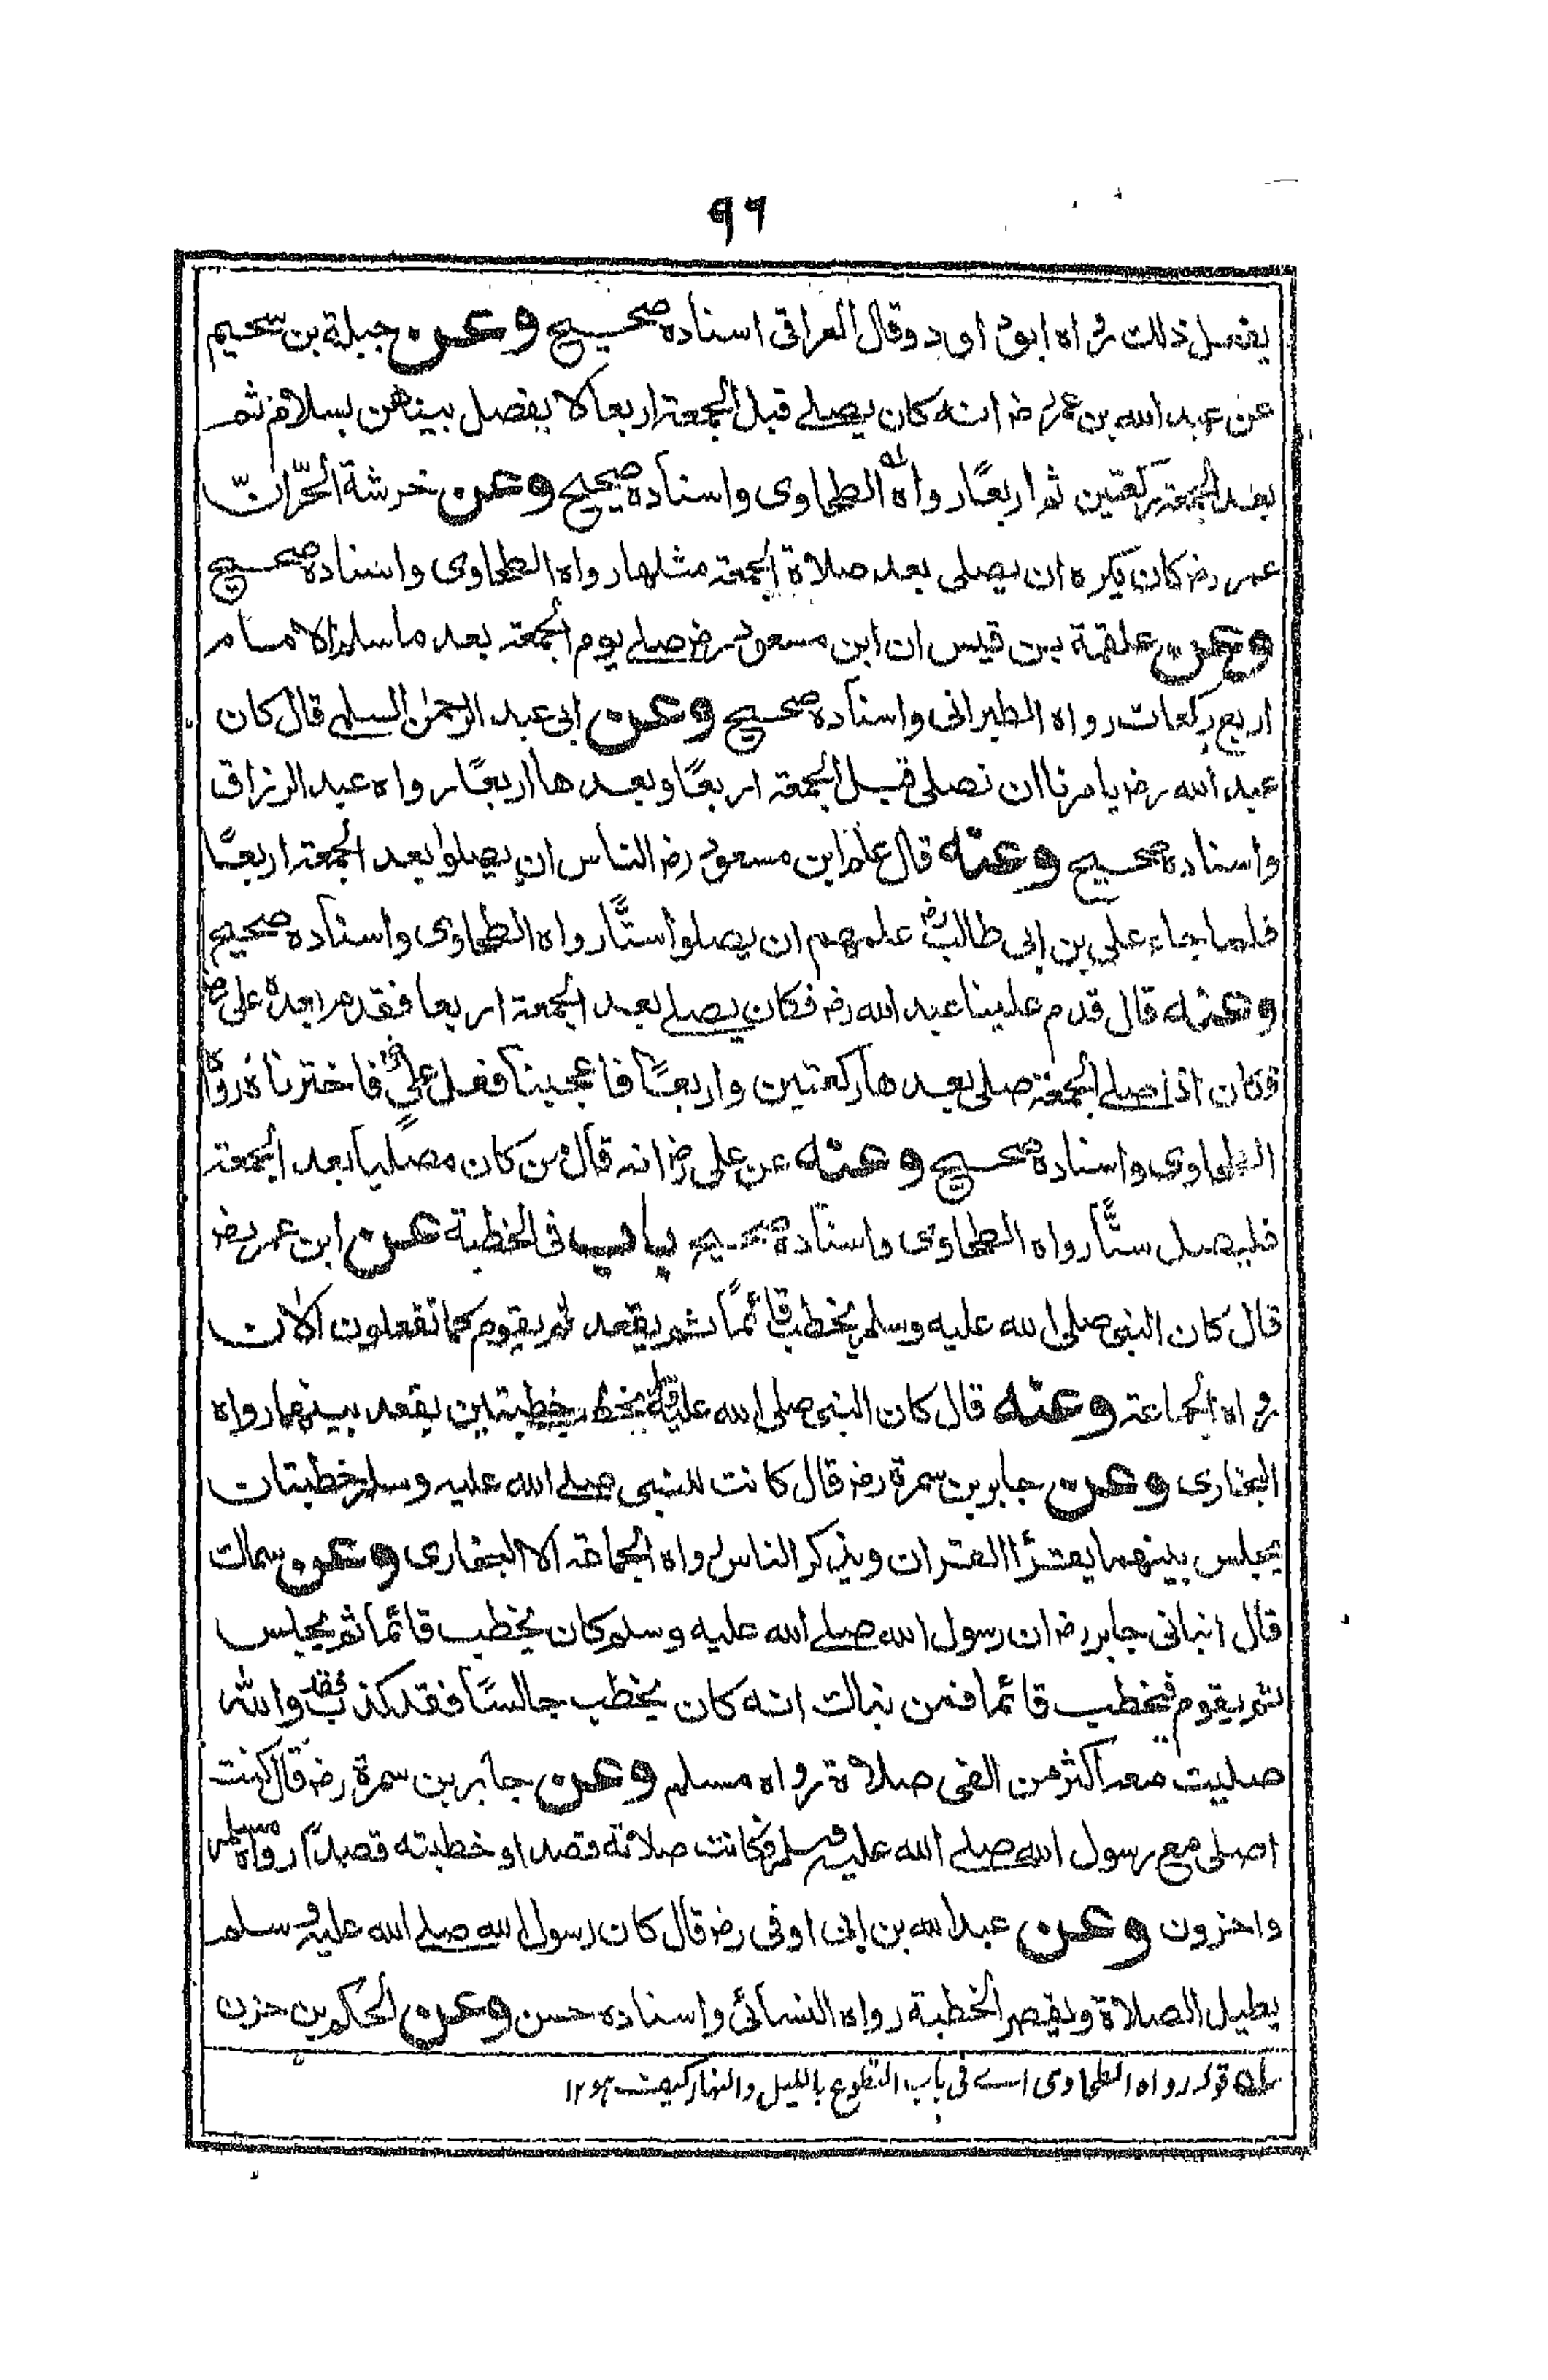 ٩٦
يفعل ذلك رواه ابو داود وقال العراقي اسناده صحيح وعن جبلة بن سحيم
عن عبد الله بن عمر رض انه كان يصلي قبل الجمعة اربعا لا يفصل بينهن بسلام ثم
بعد الجمعة ركعتين ثم اربعًا رواه الطحاوي واسناده صحيح وعن خرشة بن الحر ان
عمر رض كان يكره ان يصلي بعد صلاة الجمعة مثلها رواه الطحاوي واسناده صحيح
وعن علقمة بن قيس ان ابن مسعود رض صلى يوم الجمعة بعد ما سلم الامام
اربع ركعات رواه الطبراني واسناده صحيح وعن ابي عبد الرحمٰن السلمي قال كان
عبد الله رض يامرنا ان نصلي قبل الجمعة اربعًا وبعدها اربعًا رواه عبد الرزاق
واسناده صحيح وعنه قال علم ابن مسعود رض الناس ان يصلوا بعد الجمعة اربعًا
فلما جاء علي بن ابي طالب رض علمهم ان يصلوا ستًّا رواه الطحاوي واسناده صحيح
وعنه قال قدم علينا عبد الله رض فكان يصلي بعد الجمعة اربعا فقدم بعده علي رض
فكان اذا صلى الجمعة صلى بعدها ركعتين واربعًا فاعجبنا فعل علي رض فاخترناه رواه
الطحاوي واسناده صحيح وعنه عن علي رض انه قال من كان مصليا بعد الجمعة
فليصل ستًّا رواه الطحاوي واسناده صحيح باب في الخطبة عن ابن عمر رض
قال كان النبي صلى الله عليه وسلم يخطب قائمًا ثم يقعد ثم يقوم كما تفعلون الاٰن
رواه الجماعة وعنه قال كان النبي صلى الله عليه وسلم يخطب خطبتين يقعد بينهما رواه
البخاري وعن جابر بن سمرة رض قال كانت للنبي صلى الله عليه وسلم خطبتان
يجلس بينهما يقرأ القران ويذكر الناس رواه الجماعة الا البخاري وعن سماك
قال انباني جابر رض ان رسول الله صلى الله عليه وسلم كان يخطب قائما ثم يجلس
ثم يقوم فيخطب قائما فمن نباك انه كان يخطب جالسًا فقد كذب فقد والله
صليت معه اكثر من الفي صلاة رواه مسلم وعن جابر بن سمرة رض قال كنت
اصلي مع رسول الله صلى الله عليه وسلم فكانت صلاته قصدا وخطبته قصدًا رواه مسلم
واخرون وعن عبد الله بن ابي اوفى رض قال كان رسول الله صلى الله عليه وسلم
يطيل الصلاة ويقصر الخطبة رواه النسائي واسناده حسن وعن الحكم بن حزن
له قوله رواه الطحاوي اي في باب التطوع بالليل والنهار كيف هو ١٢